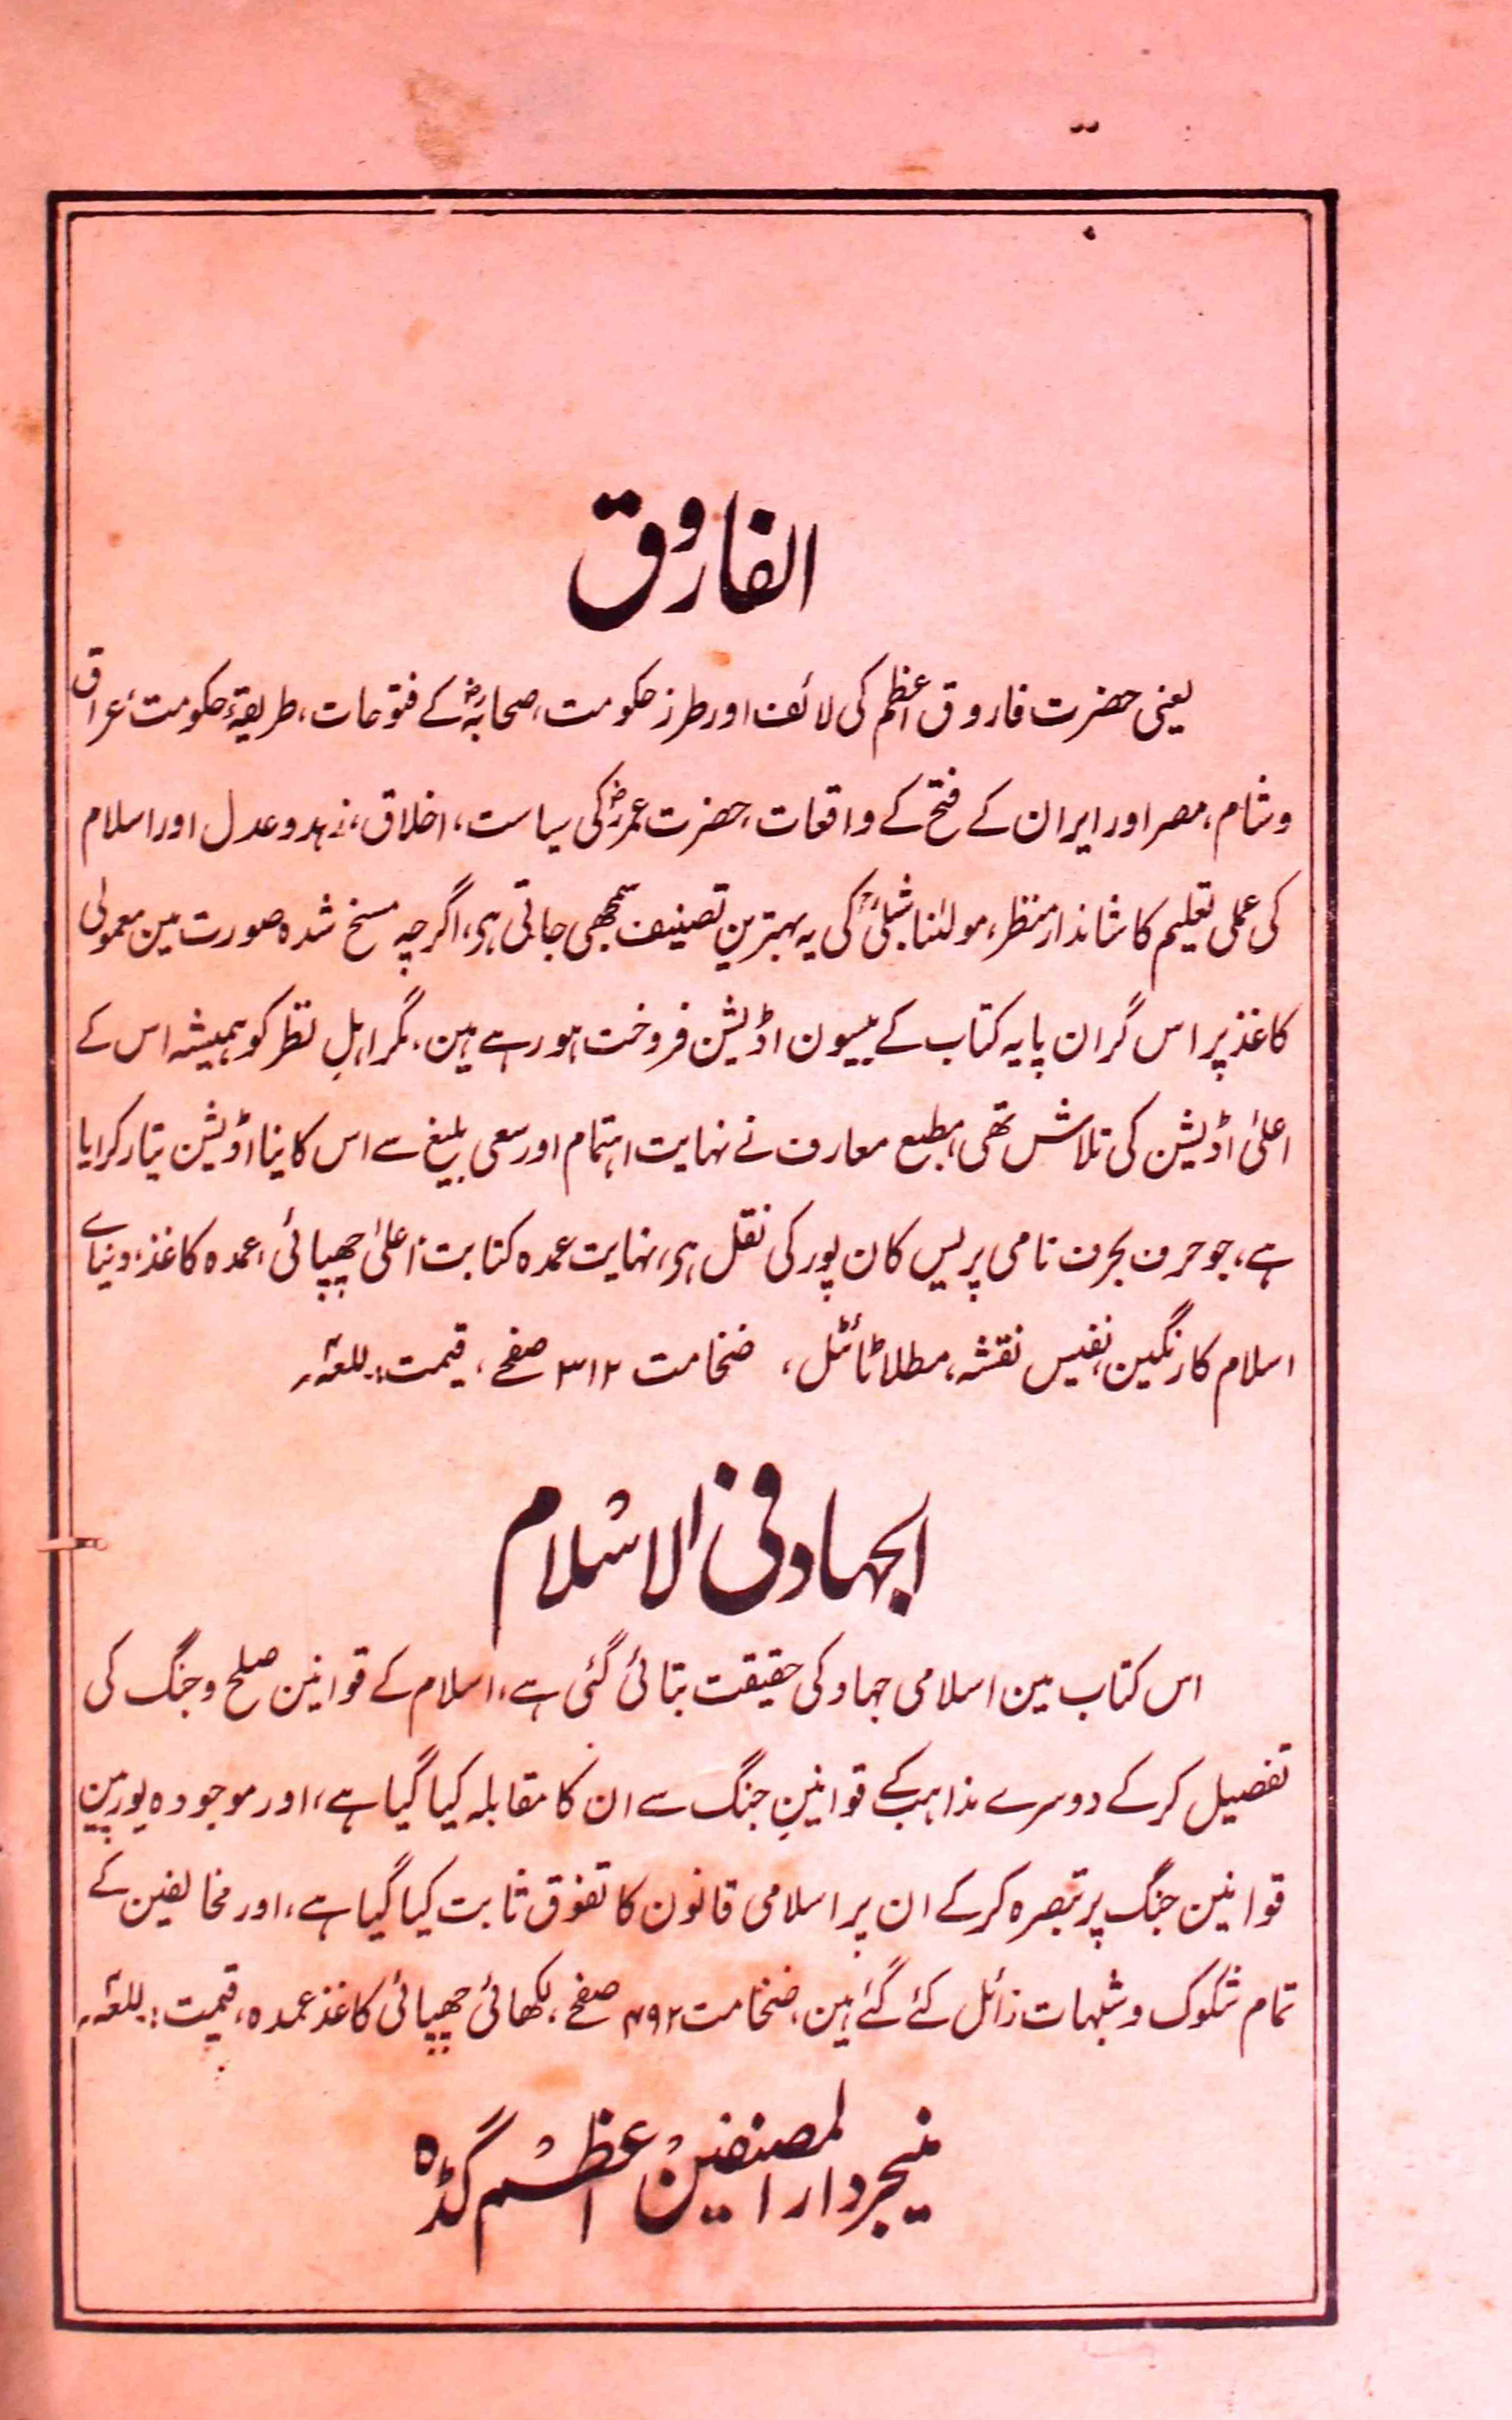 الفاروق
یعنی حضرت فاروق اعظم کی لائف اور طرز حکومت، صحابہؓ کے فتوحات، طریقۂ حکومت، عراق
و شام، مصر اور ایران کے فتح کے واقعات، حضرت عمرؓ کی سیاست، اخلاق، زہد و عدل اور اسلام
کی عملی تعلیم کا شاندار منظر، مولٰنا شبلیؒ کی یہ بہترین تصنیف سمجھی جاتی ہی، اگرچہ مسخ شدہ صورت مین معمولی
کاغذ پر اس گران پایہ کتاب کے بیسیون اڈیشن فروخت ہو رہے ہین، مگر اہلِ نظر کو ہمیشہ اس کے
اعلیٰ اڈیشن کی تلاش تھی، مطبع معارف نے نہایت اہتمام اور سعی بلیغ سے اس کا نیا اڈیشن تیار کرایا
ہے، جو حرف بحرف نامی پریس کان پور کی نقل ہی، نہایت عمدہ کتابت، اعلیٰ چھپائی، عمدہ کاغذ، دنیاے
اسلام کا رنگین نفیس نقشہ، مطلا ٹائٹل، ضخامت ۳۱۲ صفحے، قیمت:
الجہاد فی الاسلام
اس کتاب مین اسلامی جہاد کی حقیقت بتائی گئی ہے، اسلام کے قوانین صلح و جنگ کی
تفصیل کر کے دوسرے مذاہب کے قوانینِ جنگ سے ان کا مقابلہ کیا گیا ہے، اور موجودہ یورپین
قوانین جنگ پر تبصرہ کر کے ان پر اسلامی قانون کا تفوق ثابت کیا گیا ہے، اور مخالفین کے
تمام شکوک و شبہات زائل کئے گئے ہین، ضخامت ۴۹۲ صفحے، لکھائی چھپائی کاغذ عمدہ، قیمت:
منیجر دار المصنفین اعظم گڈہ